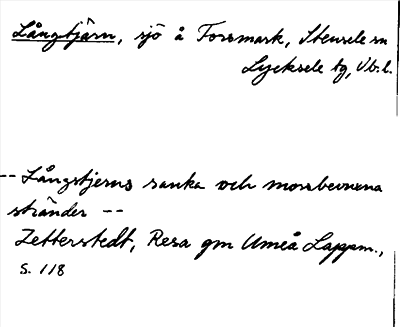 Långtjärn, sjö å Forsmark, Stensele sn
Lycksele tg, Vb.l.
-- Långstjerns sanka och mossbevuxna
stränder --
Zetterstedt, Resa gm Umeå Lappm.,
s. 118